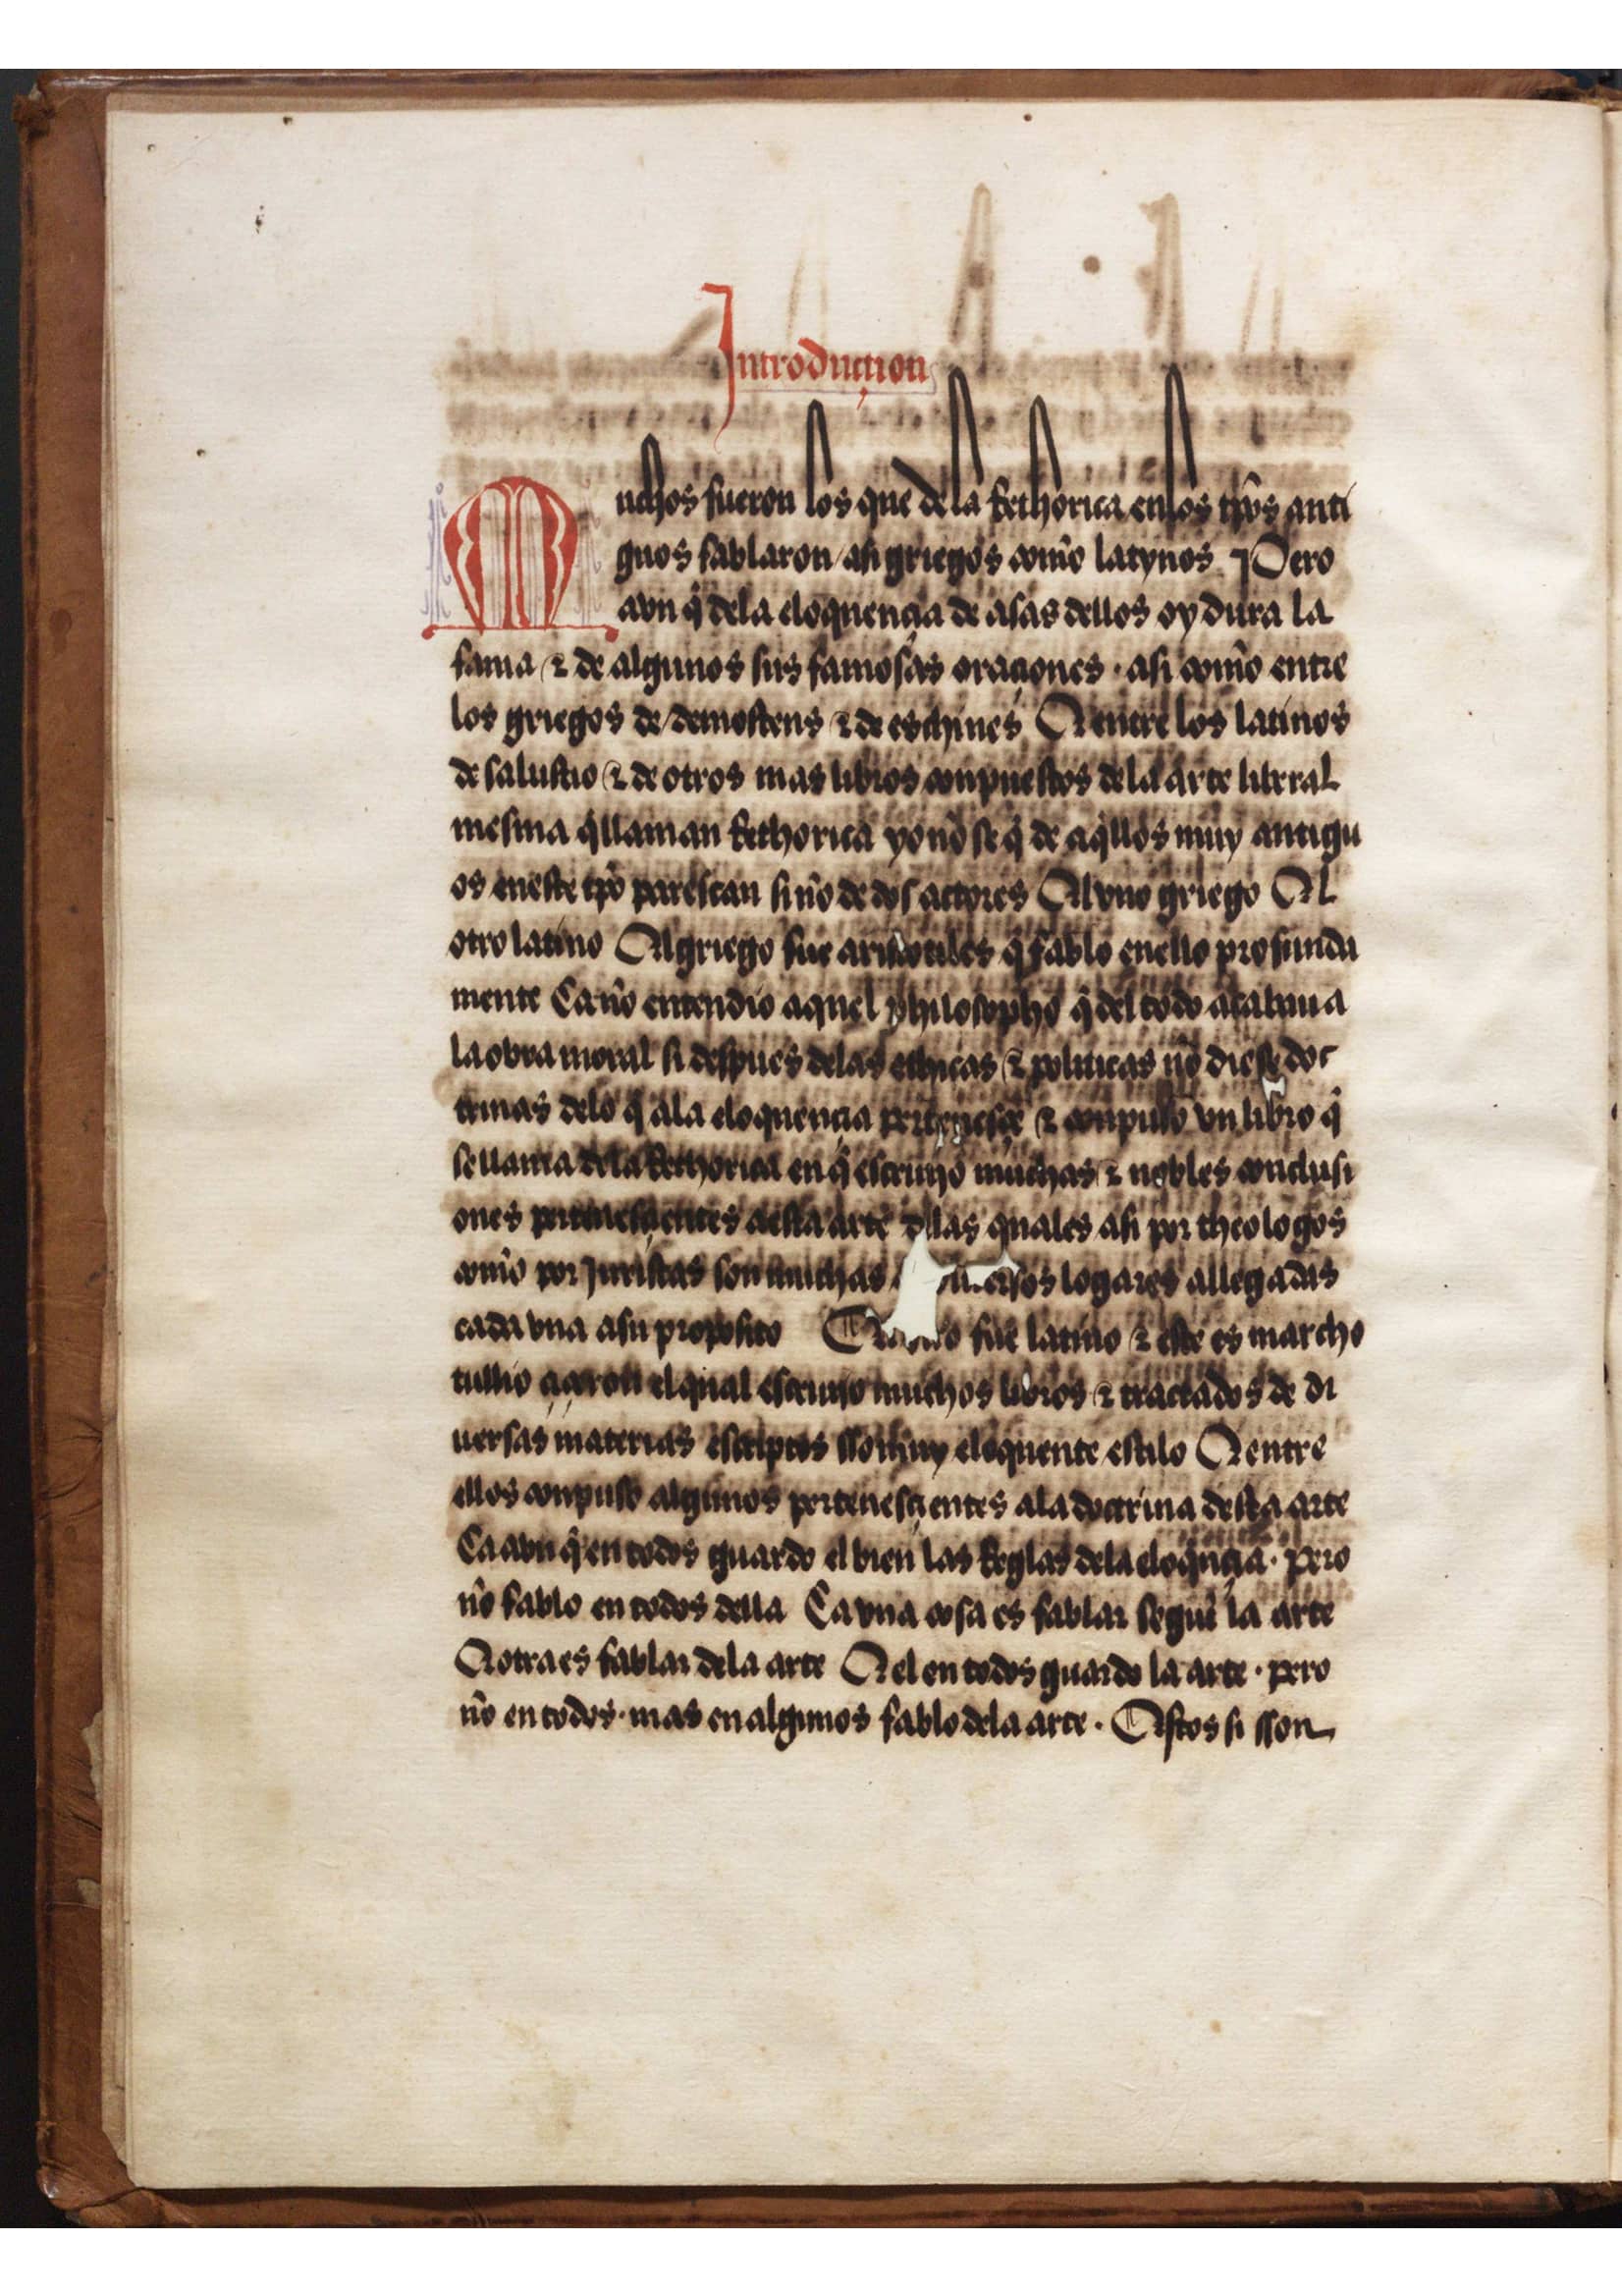 Introduçion
Muchos fueron los que de la Rethorica en los tp̃os anti
guos fablaron / asi griegos com̃o latynos. Pero
avn q̃ dela eloquençia de asas dellos oy dura la
fama / ⁊ de algunos sus famosas oraçiones · asi com̃o entre
los griegos de demostens ⁊ de eschines E entre los latinos
de salustio / ⁊ de otros mas libros conpuestos dela arte liberal
mesma q̃ llaman Rethorica yo nõ se q̃ de aq̃llos muy antigu
os eneste tp̃o parescan si nõ de dos actores El vno griego El
otro latino El griego fue aristotiles q̃ fablo enello profunda
mente Ca nõ entendio aquel philosopho q̃ del todo acabaua
la obra moral si despues delas ethicas / ⁊ politicas nõ diese doc
trinas delo q̃ ala eloquençia pertenesçe / ⁊ conpuso vn libro q̃
se llama dela Rethorica en q̃ escriuio muchas ⁊ nobles conclusi
ones pertenesçientes aesta arte dllas quales asi por theologos
com̃o por Juristas son muchas logares allegadas
cada vna asu proposito fue latino ⁊ este es marcho
tullio çiçeron el qual escriuio muchos libros ⁊ tractados de di
uersas materias escriptos sso muy eloquente estilo E entre
ellos conpuso algunos pertenesçientes ala doctrina desta arte
Ca avn q̃ en todos guardo el bien las Reglas dela eloq̃nçia · pero
nõ fablo en todos della Ca vna cosa es fablar segũt la arte
E otra es fablar dela arte E el en todos guardo la arte · pero
nõ en todos · mas en algunos fablo dela arte · Estos si sson